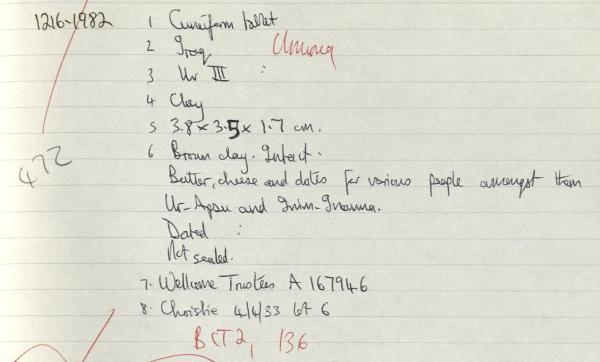 1216-1982 1 Cuneiform tablet
2 Iraq Umma
3 Ur III :
4 Clay
5 3.8 x 3.5 x 1.7 cm.
6 Brown clay. Intact.
Butter, cheese and dates for various people amongst them
Ur-Apsu and Inim-Inanna.
Dated :
Not sealed.
472
7. Wellcome Trustees A 167946
8. Christie 4/4/33 lot 6
BCT2, 136